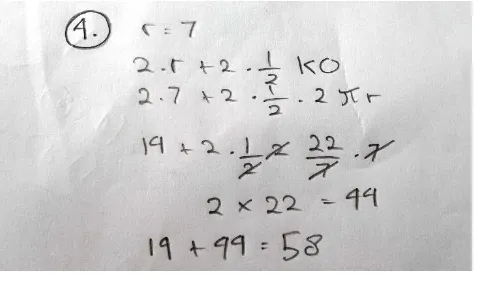 4. r = 7
2 . r + 2 . 1/2 KO
2 . 7 + 2 . 1/2 . 2 π r
14 + 2 . 1/2 . 2 22/7 . 7
2 × 22 = 44
14 + 44 = 58